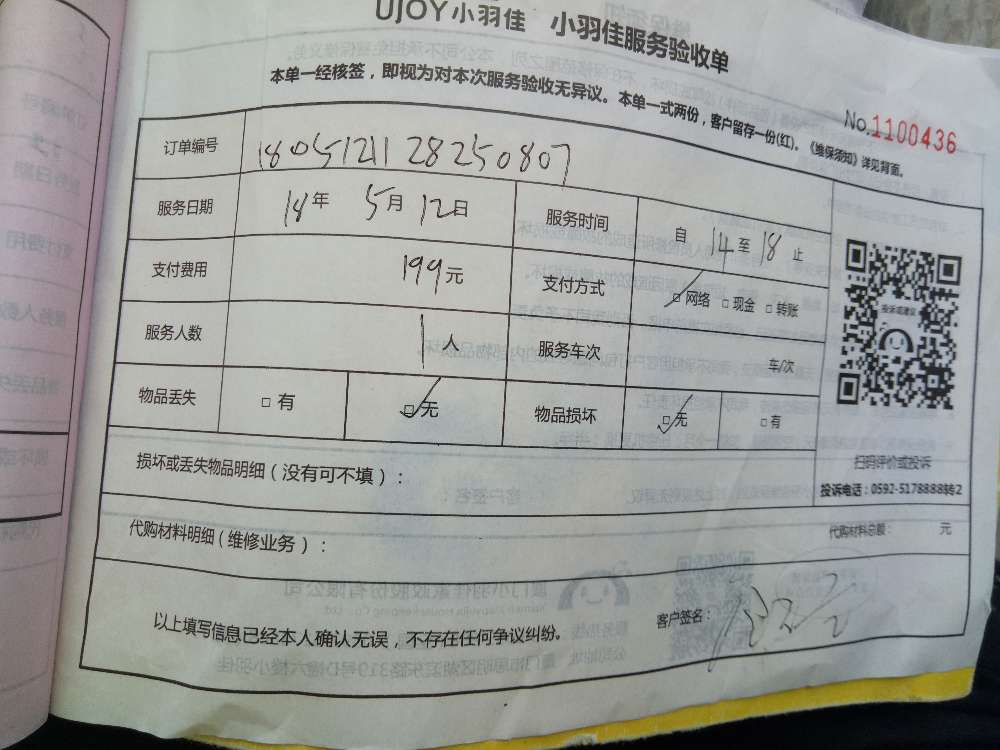 UJOY小羽佳 小羽佳服务验收单
本单一经核签，即视为对本次服务验收无异议。本单一式两份，客户留存一份(红)。《维保须知》详见背面。
No.1100436
订单编号 1805121128250807
服务日期 18年 5月 12日 服务时间 自 14 至 18 止
支付费用 199元 支付方式 □ 网络 □ 现金 □ 转账
服务人数 1人 服务车次 车/次
物品丢失 □ 有 □ 无 物品损坏 □ 无 □ 有
投诉或建议
扫码评价或投诉
投诉电话：0592-5178888转2
损坏或丢失物品明细（没有可不填）：
代购材料明细（维修业务）： 代购材料总额： 元
以上填写信息已经本人确认无误，不存在任何争议纠纷。 客户签名：